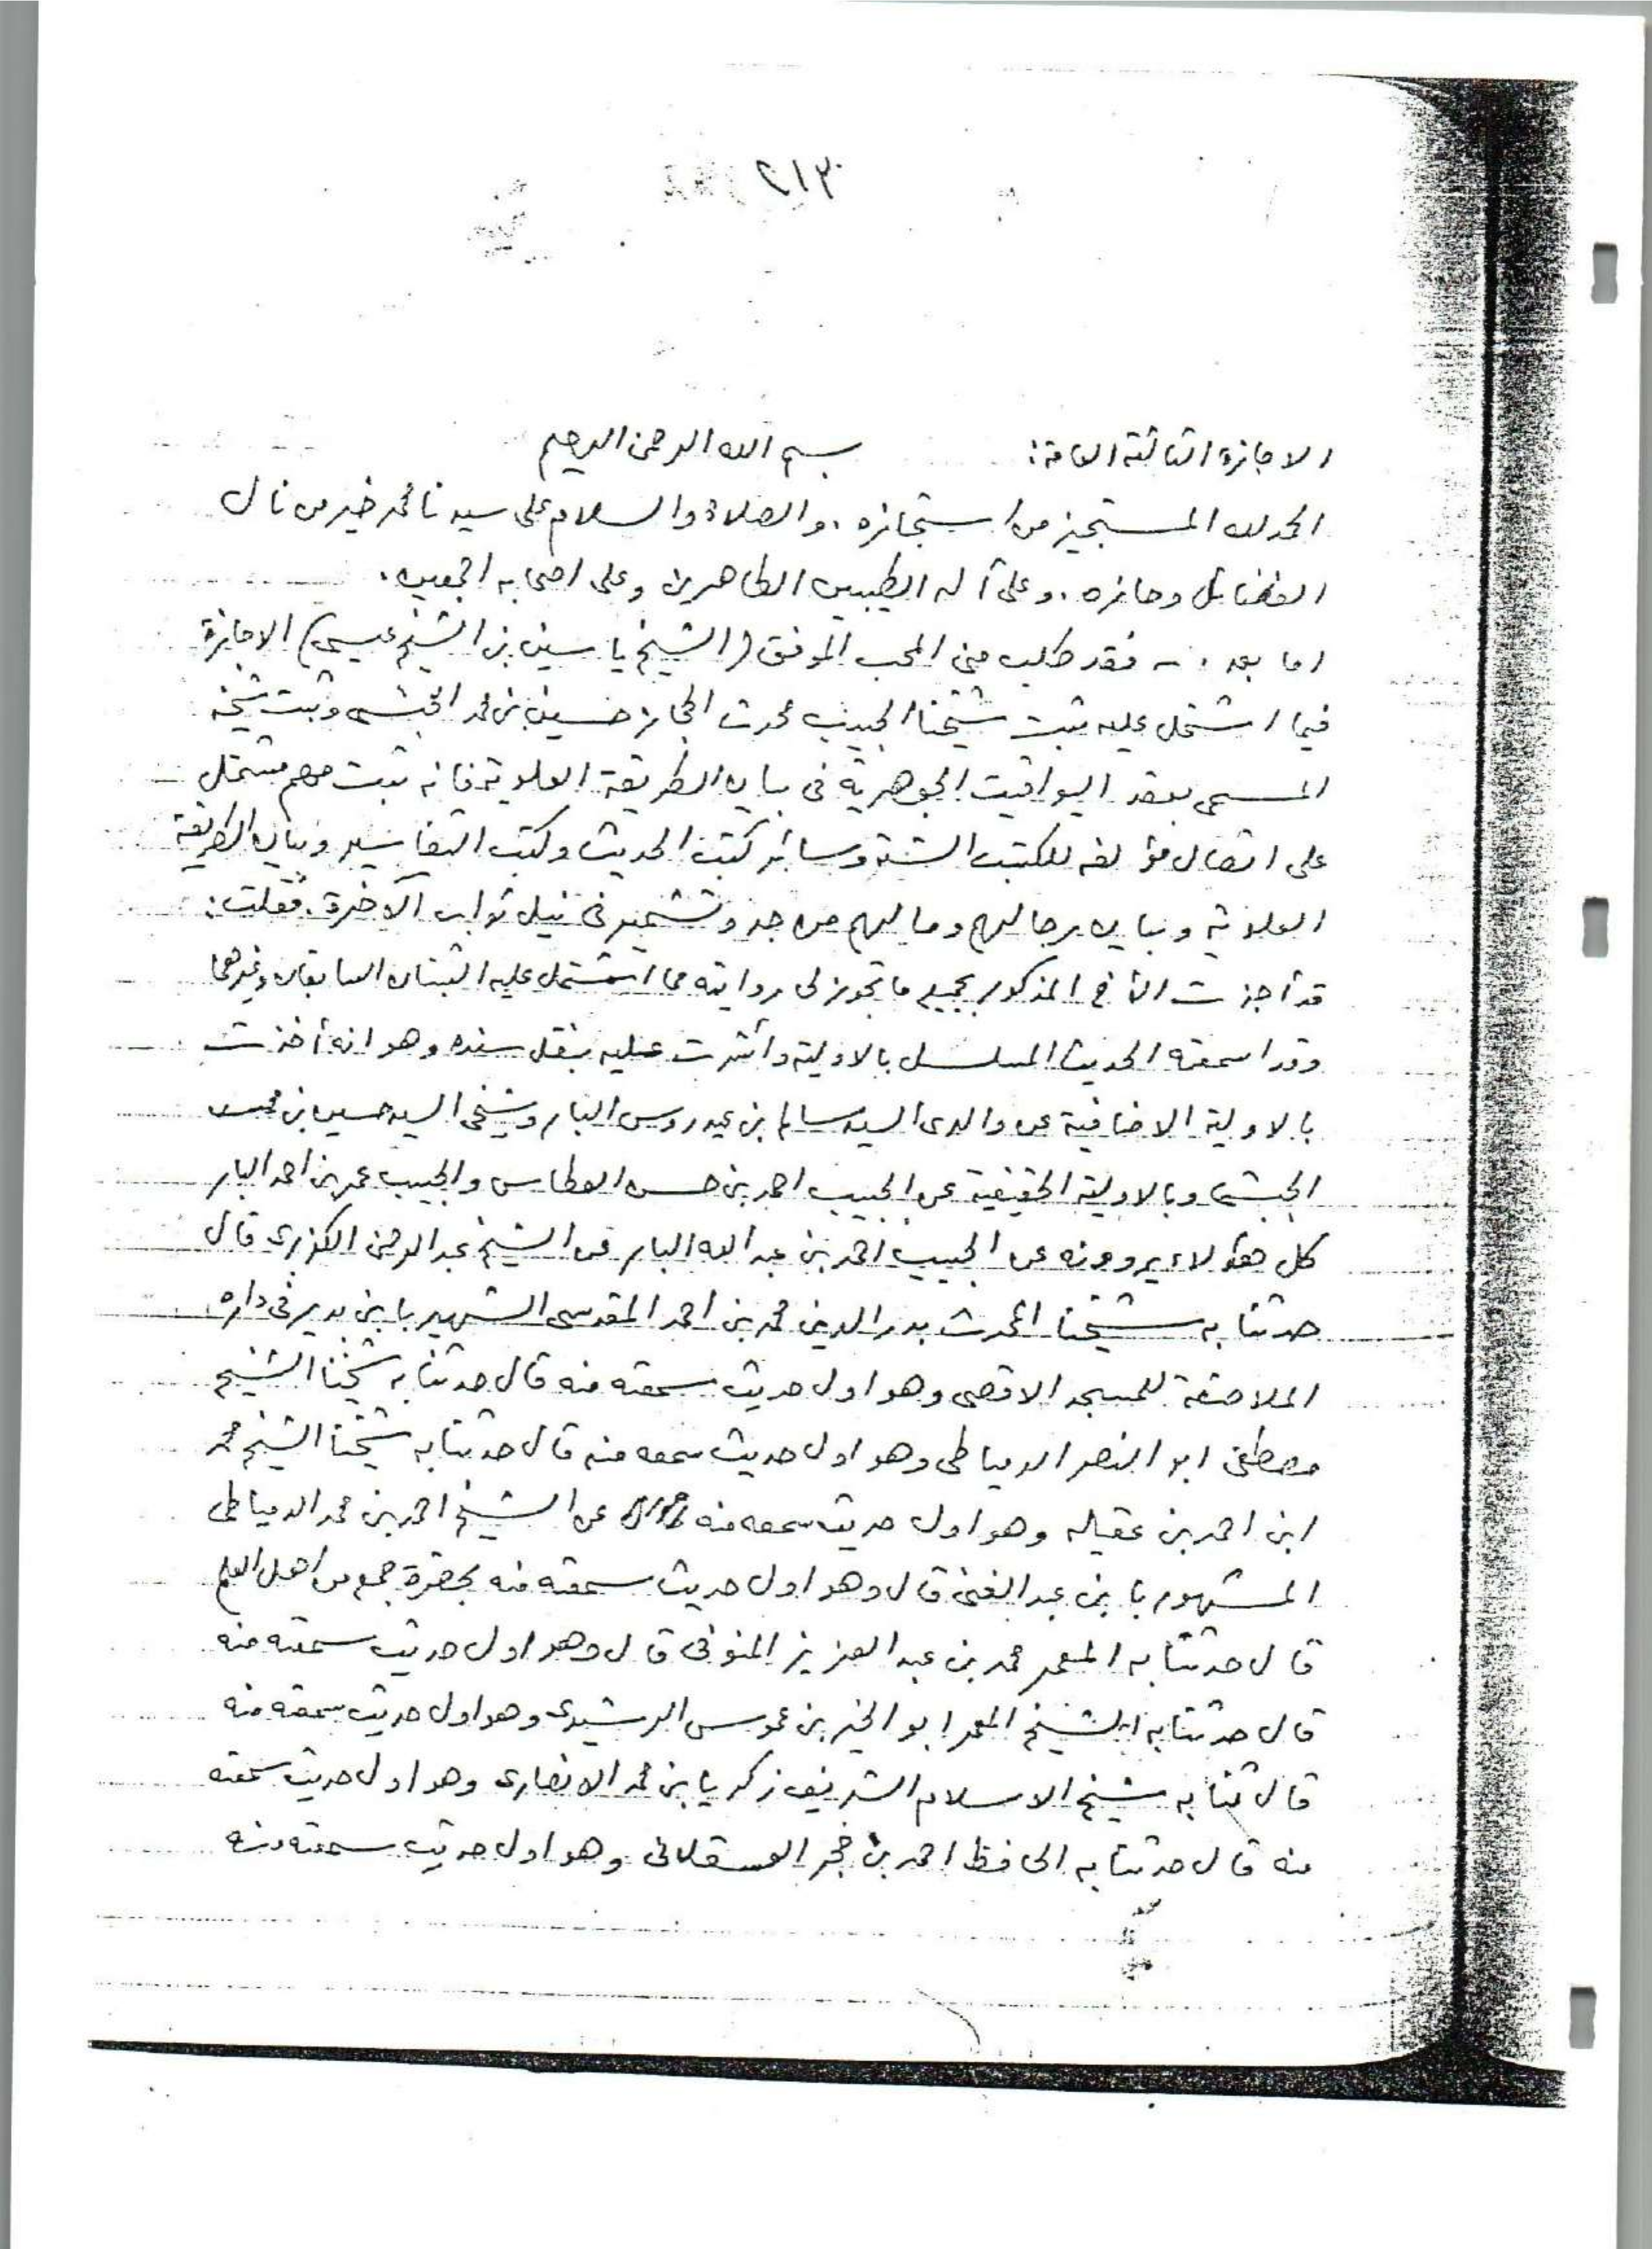 ٢١٣
الاجازة الثالثة العامة: بسم الله الرحمن الرحيم
الحمد لله المستجيز من استجازه، والصلاة والسلام على سيدنا محمد خير من نال
الفضائل وحازه، وعلى آله الطيبين الطاهرين وعلى اصحابه اجمعين.
اما بعد، فقد طلب مني المحب الموفق (الشيخ ياسين بن الشيخ عيسى) الاجازة
فيما اشتمل عليه ثبت شيخنا الحبيب محدث الحجاز حسين بن محمد الحبشي وثبت شيخه
المسمى بعقد اليواقيت الجوهرية في بيان الطريقة العلوية فانه ثبت مهم مشتمل
على اتصال مؤلفه للكتب الستة وسائر كتب الحديث وكتب التفاسير وبيان الطريقة
العلوية وبيان رجالهم وما لهم من جد وتشمير في نيل ثواب الآخرة. فقلت:
قد أجزت الأخ المذكور بجميع ما تجوز لي روايته مما اشتمل عليه الثبتان السابقان وغيرهما
وقد اسمعته الحديث المسلسل بالاولية وأشرت عليه بنقل سنده وهو انه أخذت
بالاولية الاضافية عن والدي السيد سالم بن عيدروس البار وشيخي السيد حسين بن محمد
الحبشي وبالاولية الحقيقية عن الحبيب احمد بن حسن العطاس والحبيب عمر بن احمد البار
كل هؤلاء يروونه عن الحبيب احمد بن عبد الله البار عن الشيخ عبد الرحمن الكزبري قال
حدثنا به شيخنا المحدث بدر الدين محمد بن احمد المقدسي الشهير بابن بدير في داره
الملاصقة للمسجد الاقصى وهو اول حديث سمعته منه قال حدثنا به شيخنا الشيخ
مصطفى ابو النصر الدمياطي وهو اول حديث سمعه منه قال حدثنا به شيخنا الشيخ محمد
ابن احمد بن عقيله وهو اول حديث سمعه منه عن الشيخ احمد بن محمد الدمياطي
المشهور بابن عبد الغني قال وهو اول حديث سمعته منه بحضرة جمع من اهل العلم
قال حدثنا به المعمر محمد بن عبد العزيز المنوفي قال وهو اول حديث سمعته منه
قال حدثنا به الشيخ المعمر ابو الخير بن عموس الرشيدي وهو اول حديث سمعته منه
قال ثنا به شيخ الاسلام الشريف زكريا بن محمد الانصاري وهو اول حديث سمعته
منه قال حدثنا به الحافظ احمد بن حجر العسقلاني وهو اول حديث سمعته منه